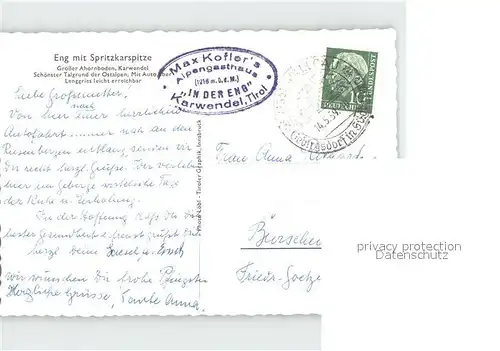 Eng mit Spritzkarspitze
Großer Ahornboden, Karwendel
Schönster Talgrund der Ostalpen. Mit Auto über
Lenggries leicht erreichbar
Max Kofler's
Alpengasthaus
(1216 m. ü. d. M.)
"IN DER ENG"
Karwendel, Tirol
Liebe Großmutter,
nach
Von hier einer herrlichen
Autofahrt immer nah an den
Riesenbergen entlang senden wir
Dir recht herzl. Grüße. Wir verleben
hier im Gebirge
der Ruhe u. Erholung.
In der Hoffnung, daß Du bei
bester Gesundheit bist, grüßt
herzl. Deine
wir wünschen Dir frohe Pfingsten
Herzliche Grüsse, Tante Anna.
Photo Löbl - Tiroler Graphik, Innsbruck
DEUTSCHE BUNDESPOST
10
Frau Anna
Friedr.-
privacy protection
Datenschutz